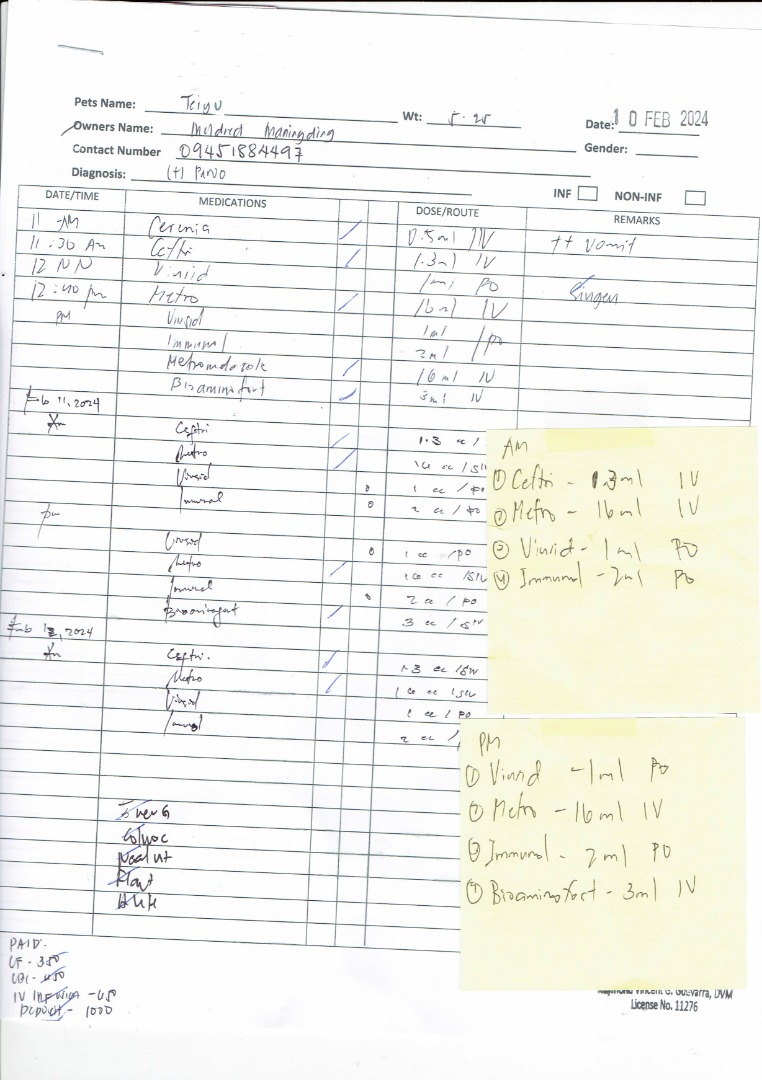 Pets Name: Teiyu Wt: 5.25 Date: 10 FEB 2024
Owners Name: Mildred Maningding Gender:
Contact Number 09451884497
Diagnosis: (+) Parvo INF NON-INF
DATE/TIME MEDICATIONS DOSE/ROUTE REMARKS
11 AM Cerenia 0.5ml IV ++ Vomit
11:30 AM Ceftri 1.3ml IV
12 NN Viusid 1ml PO
12:40 pm Metro 16ml IV
pm Viusid 1ml
Immunol 2ml / PO
Metronidazole 16ml IV
Bioaminofort 3ml IV
Feb 11, 2024
Am Ceftri 1.3 cc /
Metro 16 cc / SIV
Viusid 1 cc / PO
Immunol 2 cc / PO
pm
Viusid 1 cc / PO
Metro 16 cc / SIV
Immunol 2 cc / PO
Bioaminofort 3 cc / SIV
Feb 12, 2024
Am Ceftri. 1.3 cc / SIV
Metro 16 cc / SIV
Viusid 1 cc / PO
Immunol 2 cc /
AM
① Ceftri - 1.3ml IV
② Metro - 16ml IV
③ Viusid - 1ml PO
④ Immunol - 2ml PO
PM
① Viusid - 1ml PO
② Metro - 16ml IV
③ Immunol - 2ml PO
④ Bioaminofort - 3ml IV
PAID.
CF - 350
CBC - 450
IV INF - 650
Deposit - 1000
Raymond Vincent G. Guevarra, DVM
License No. 11276